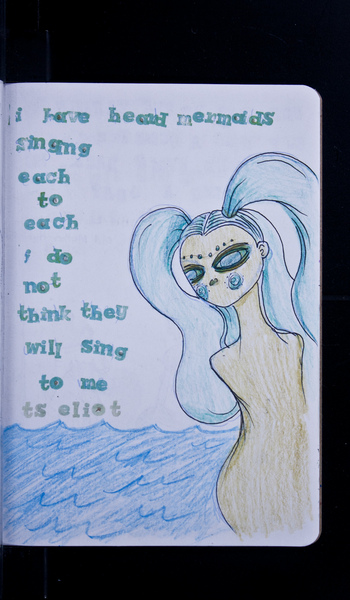 i have heard mermaids
singing
each
to
each
i do
not
think they
will sing
to me
ts eliot